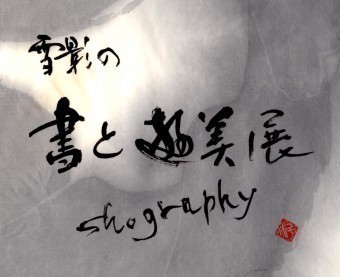 雪影の
書と遊美展
shography